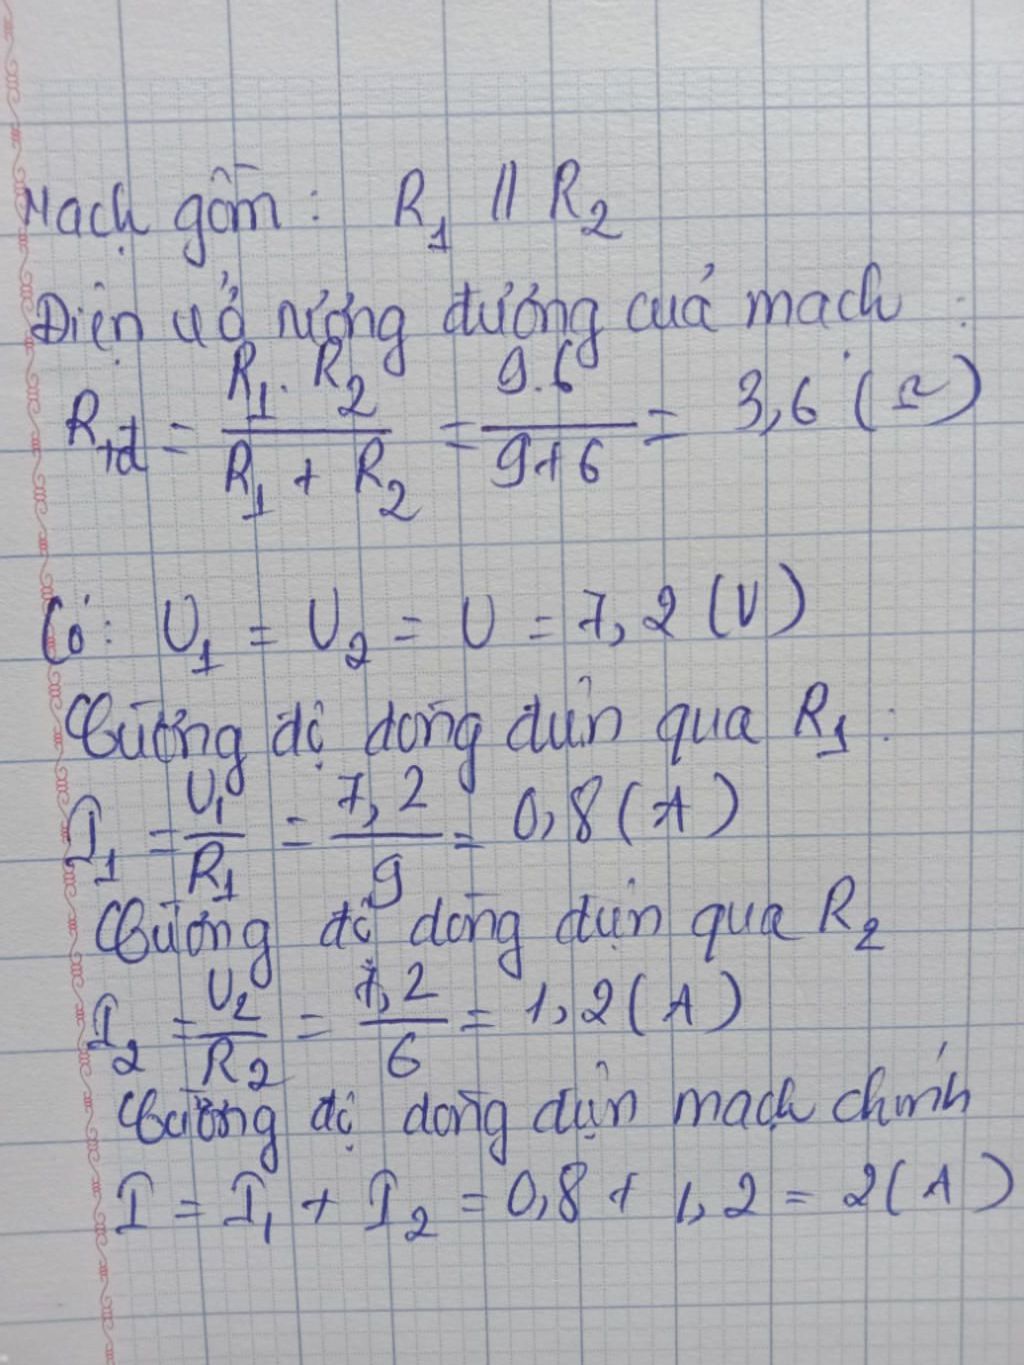 Mạch gồm: R₁ // R₂
Điện trở tương đương của mạch:
R_tđ = (R₁ . R₂)/(R₁ + R₂) = (9.6)/(9+6) = 3,6 (Ω)
Có: U₁ = U₂ = U = 7,2 (V)
Cường độ dòng điện qua R₁:
I₁ = U₁/R₁ = 7,2/9 = 0,8 (A)
Cường độ dòng điện qua R₂
I₂ = U₂/R₂ = 7,2/6 = 1,2 (A)
Cường độ dòng điện mạch chính
I = I₁ + I₂ = 0,8 + 1,2 = 2 (A)